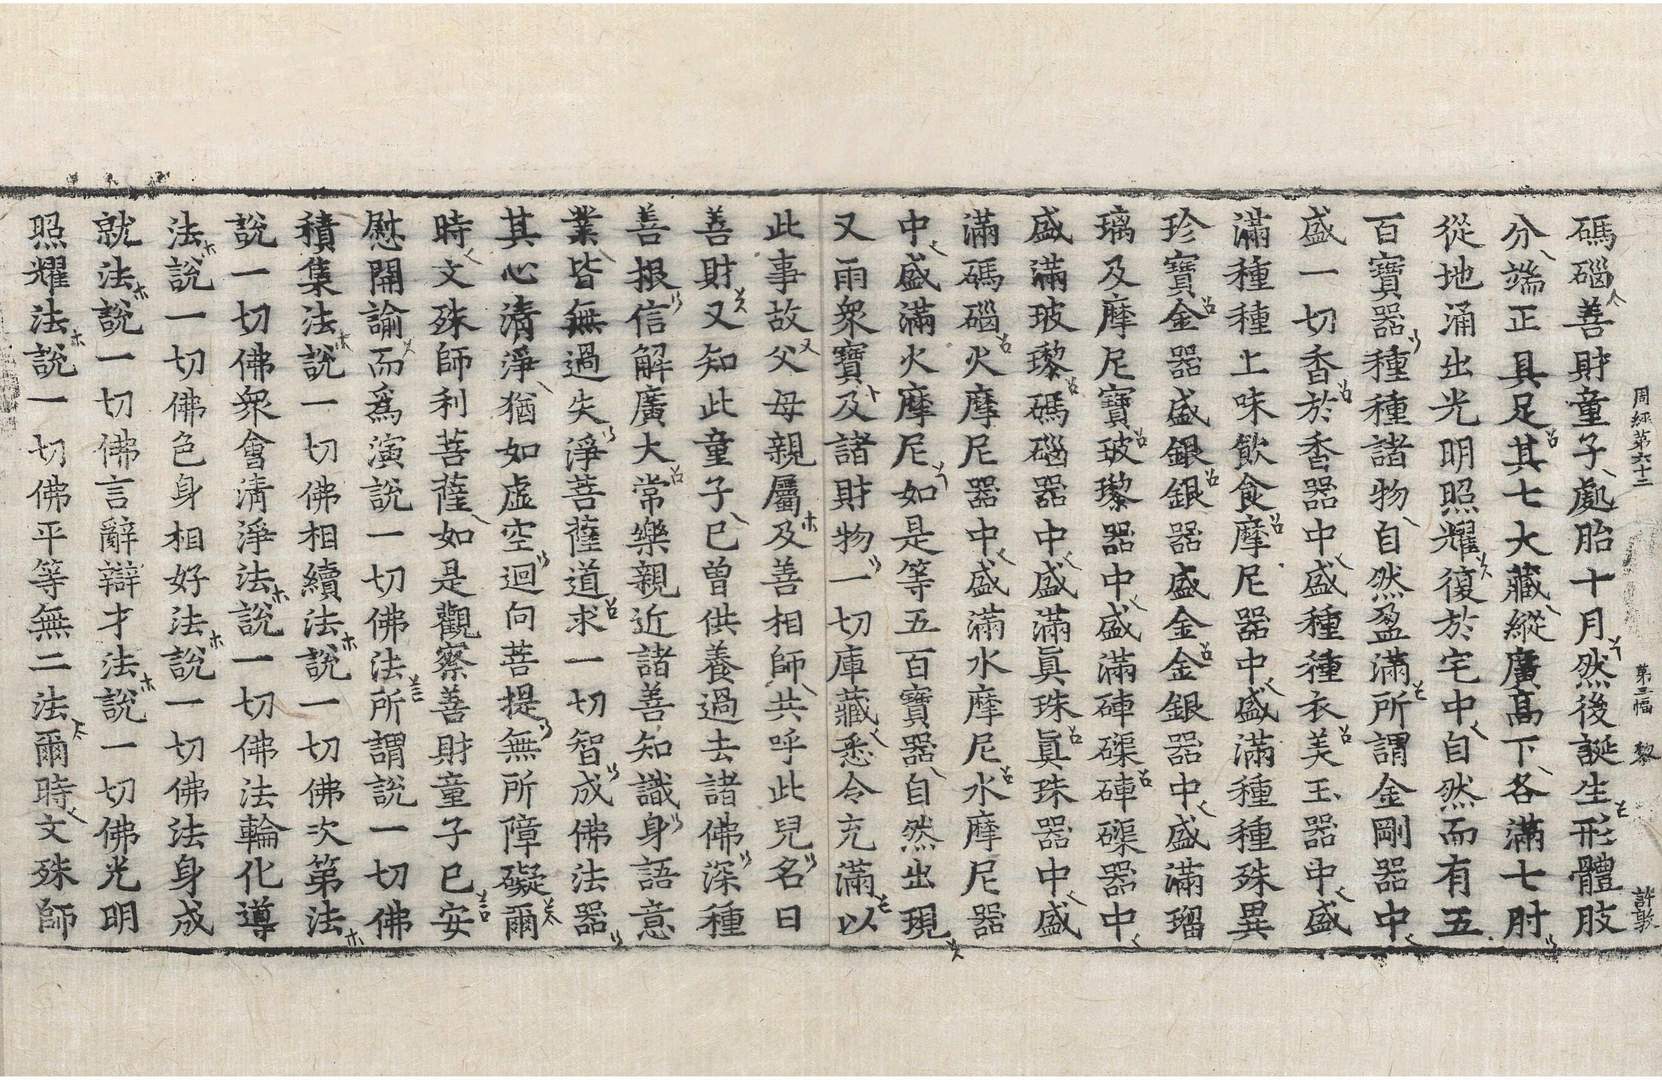 周經第六十二 第三幅 黎 許敦
碼碯善財童子處胎十月然後誕生形體肢
分端正具足其七大藏縱廣高下各滿七肘
從地涌出光明照耀復於宅中自然而有五
百寶器種種諸物自然盈滿所謂金剛器中
盛一切香於香器中盛種種衣美玉器中盛
滿種種上味飮食摩尼器中盛滿種種殊異
珍寶金器盛銀銀器盛金金銀器中盛滿瑠
璃及摩尼寶玻瓈器中盛滿硨磲硨磲器中
盛滿玻瓈碼碯器中盛滿眞珠眞珠器中盛
滿碼碯火摩尼器中盛滿水摩尼水摩尼器
中盛滿火摩尼如是等五百寶器自然出現
又雨衆寶及諸財物一切庫藏悉令充滿以
此事故父母親屬及善相師共呼此兒名曰
善財又知此童子已曾供養過去諸佛深種
善根信解廣大常樂親近諸善知識身語意
業皆無過失淨菩薩道求一切智成佛法器
其心清淨猶如虛空迴向菩提無所障礙爾
時文殊師利菩薩如是觀察善財童子已安
慰開諭而爲演說一切佛法所謂說一切佛
積集法說一切佛相續法說一切佛次第法
說一切佛衆會淸淨法說一切佛法輪化導
法說一切佛色身相好法說一切佛法身成
就法說一切佛言辭辯才法說一切佛光明
照耀法說一切佛平等無二法爾時文殊師